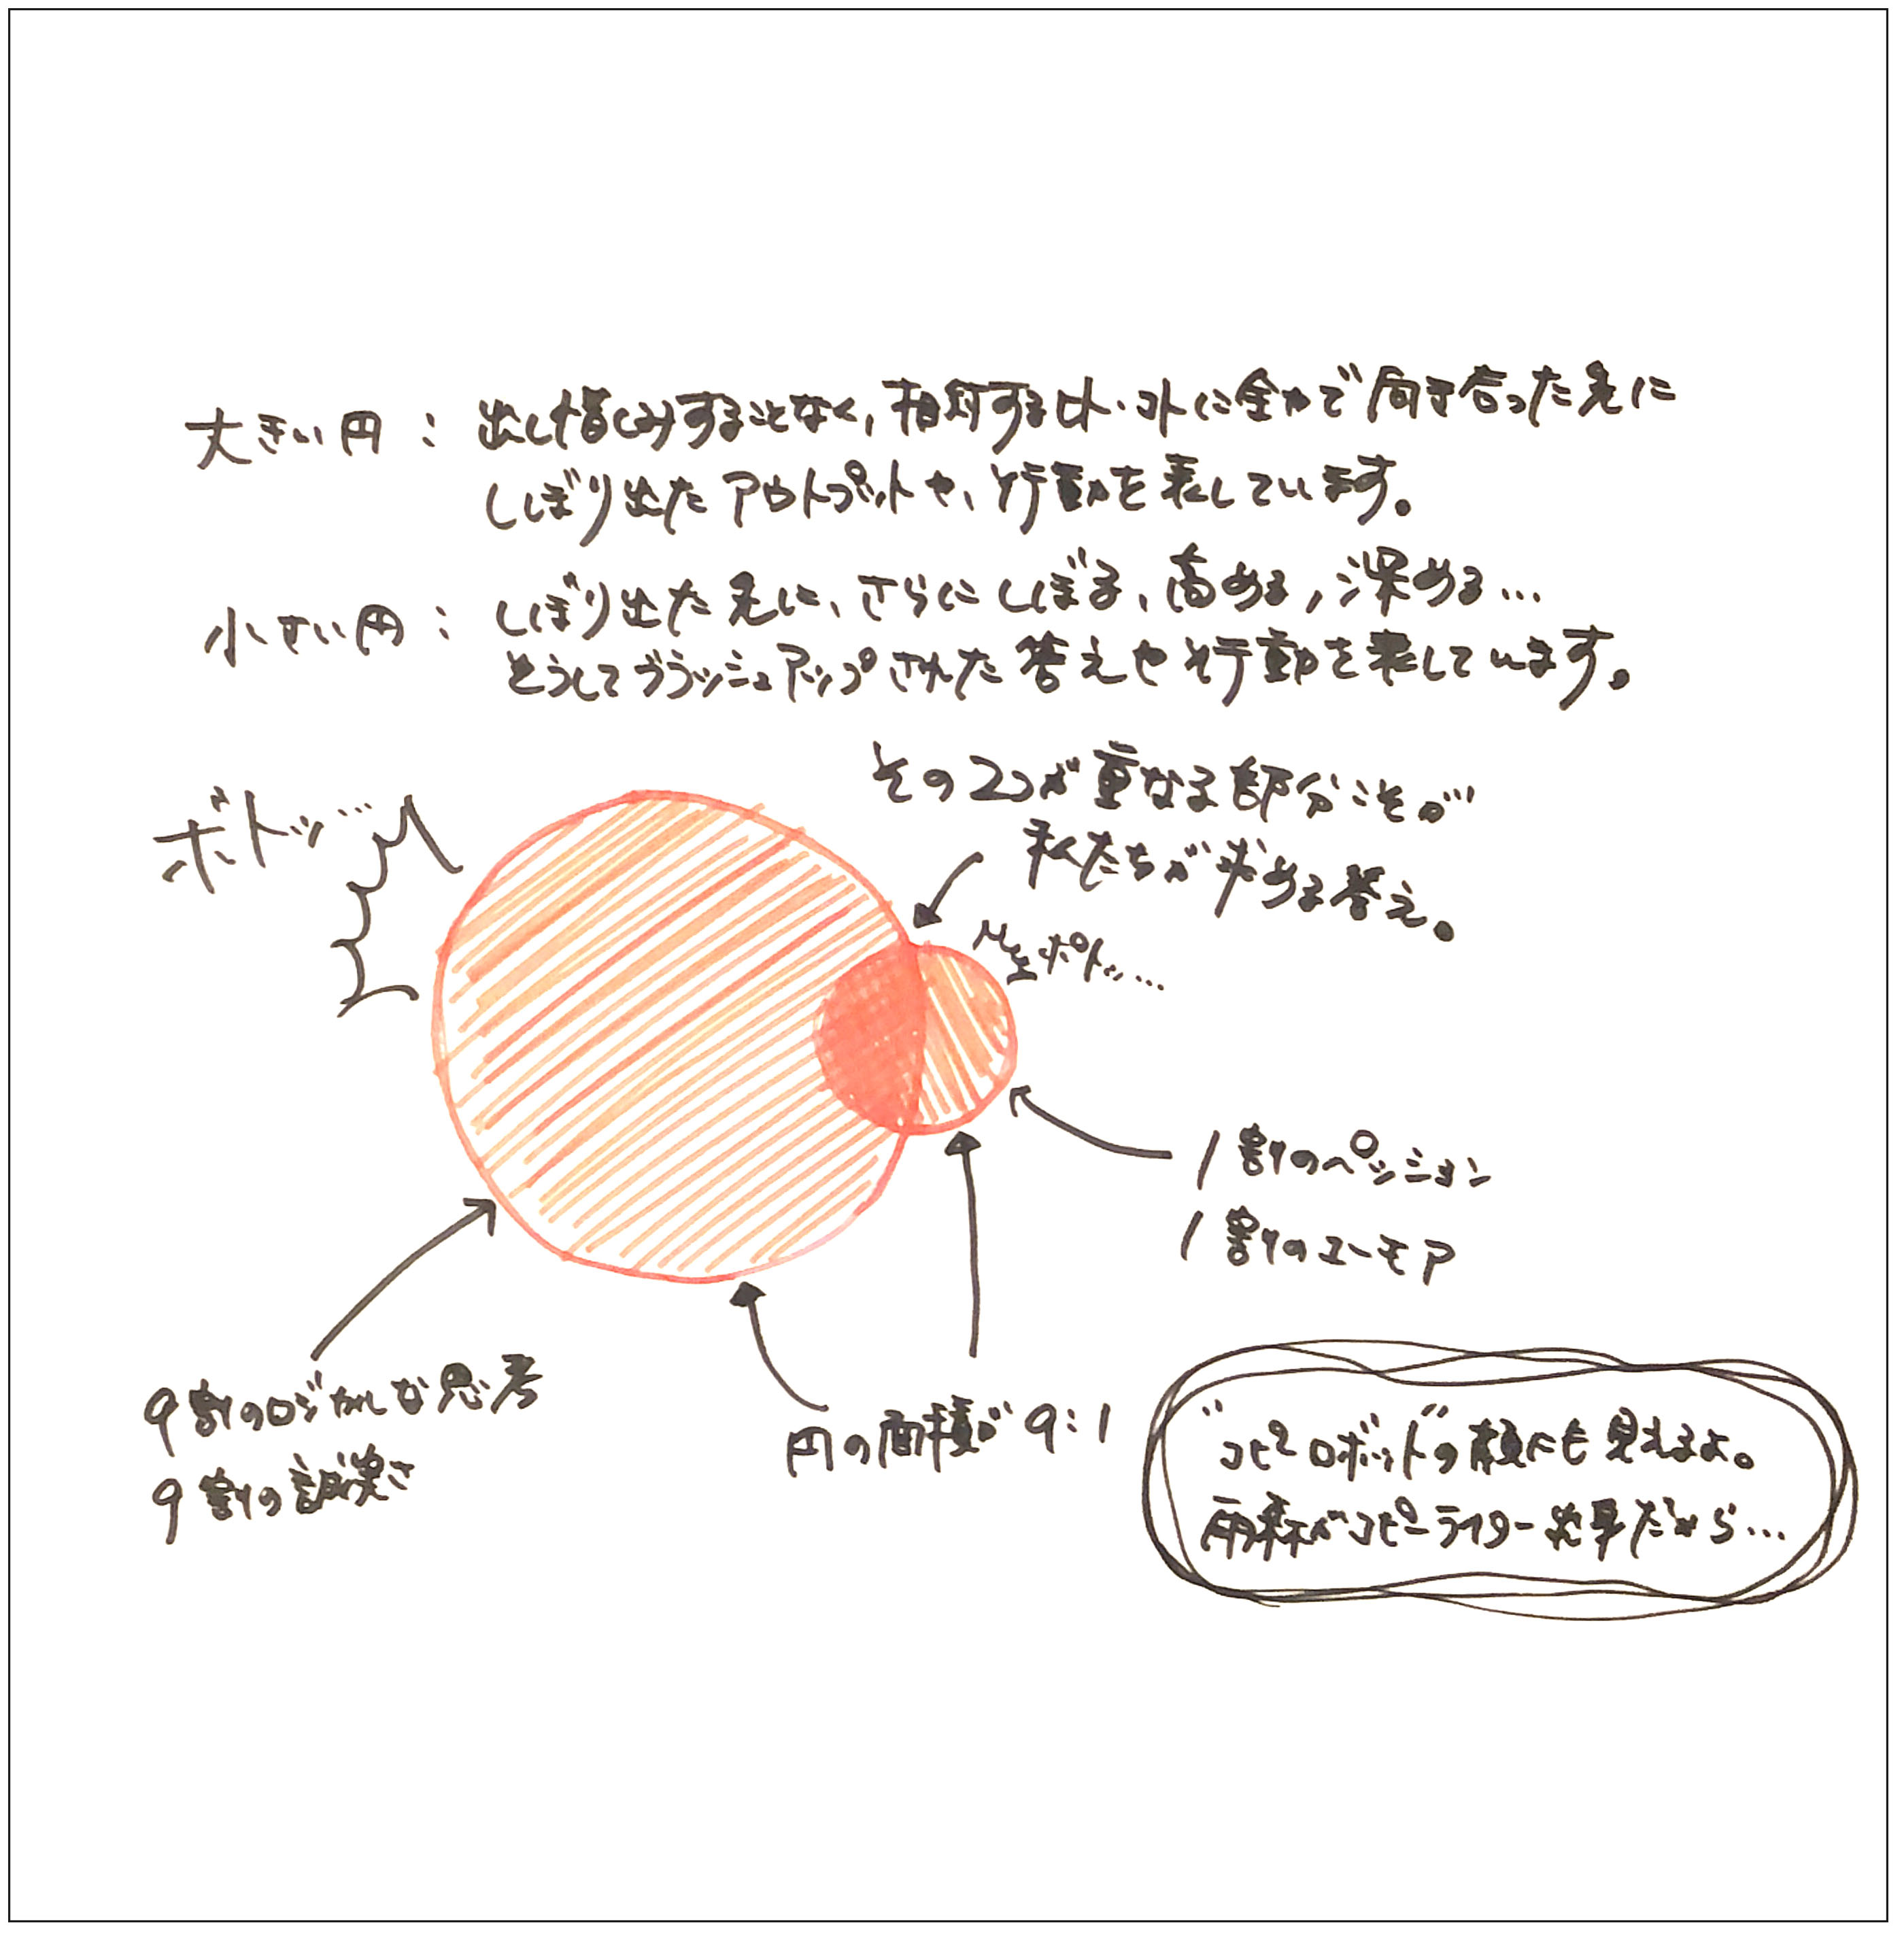 大きい円：出し惜しみすることなく、相対するヒト・コトに全力で向き合った先に
しぼり出たアウトプットや、行動を表しています。
小さい円：しぼり出た先に、さらにしぼる、高める、深める…
そうしてブラッシュアップされた答えや行動を表しています。
その2つが重なる部分こそが
私たちが求める答え。
ボトッ…
ポトッ…
1割のパッション
1割のユーモア
9割のロジカルな思考
9割の誠実さ
円の面積が9:1
"コピーロボット"の顔にも見えるよ。
雨森がコピーライター出身だから…